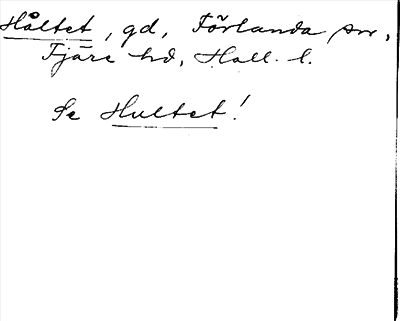 Håltet, gd, Förlanda sn,
Fjäre hd, Hall. l.
Se Hultet!